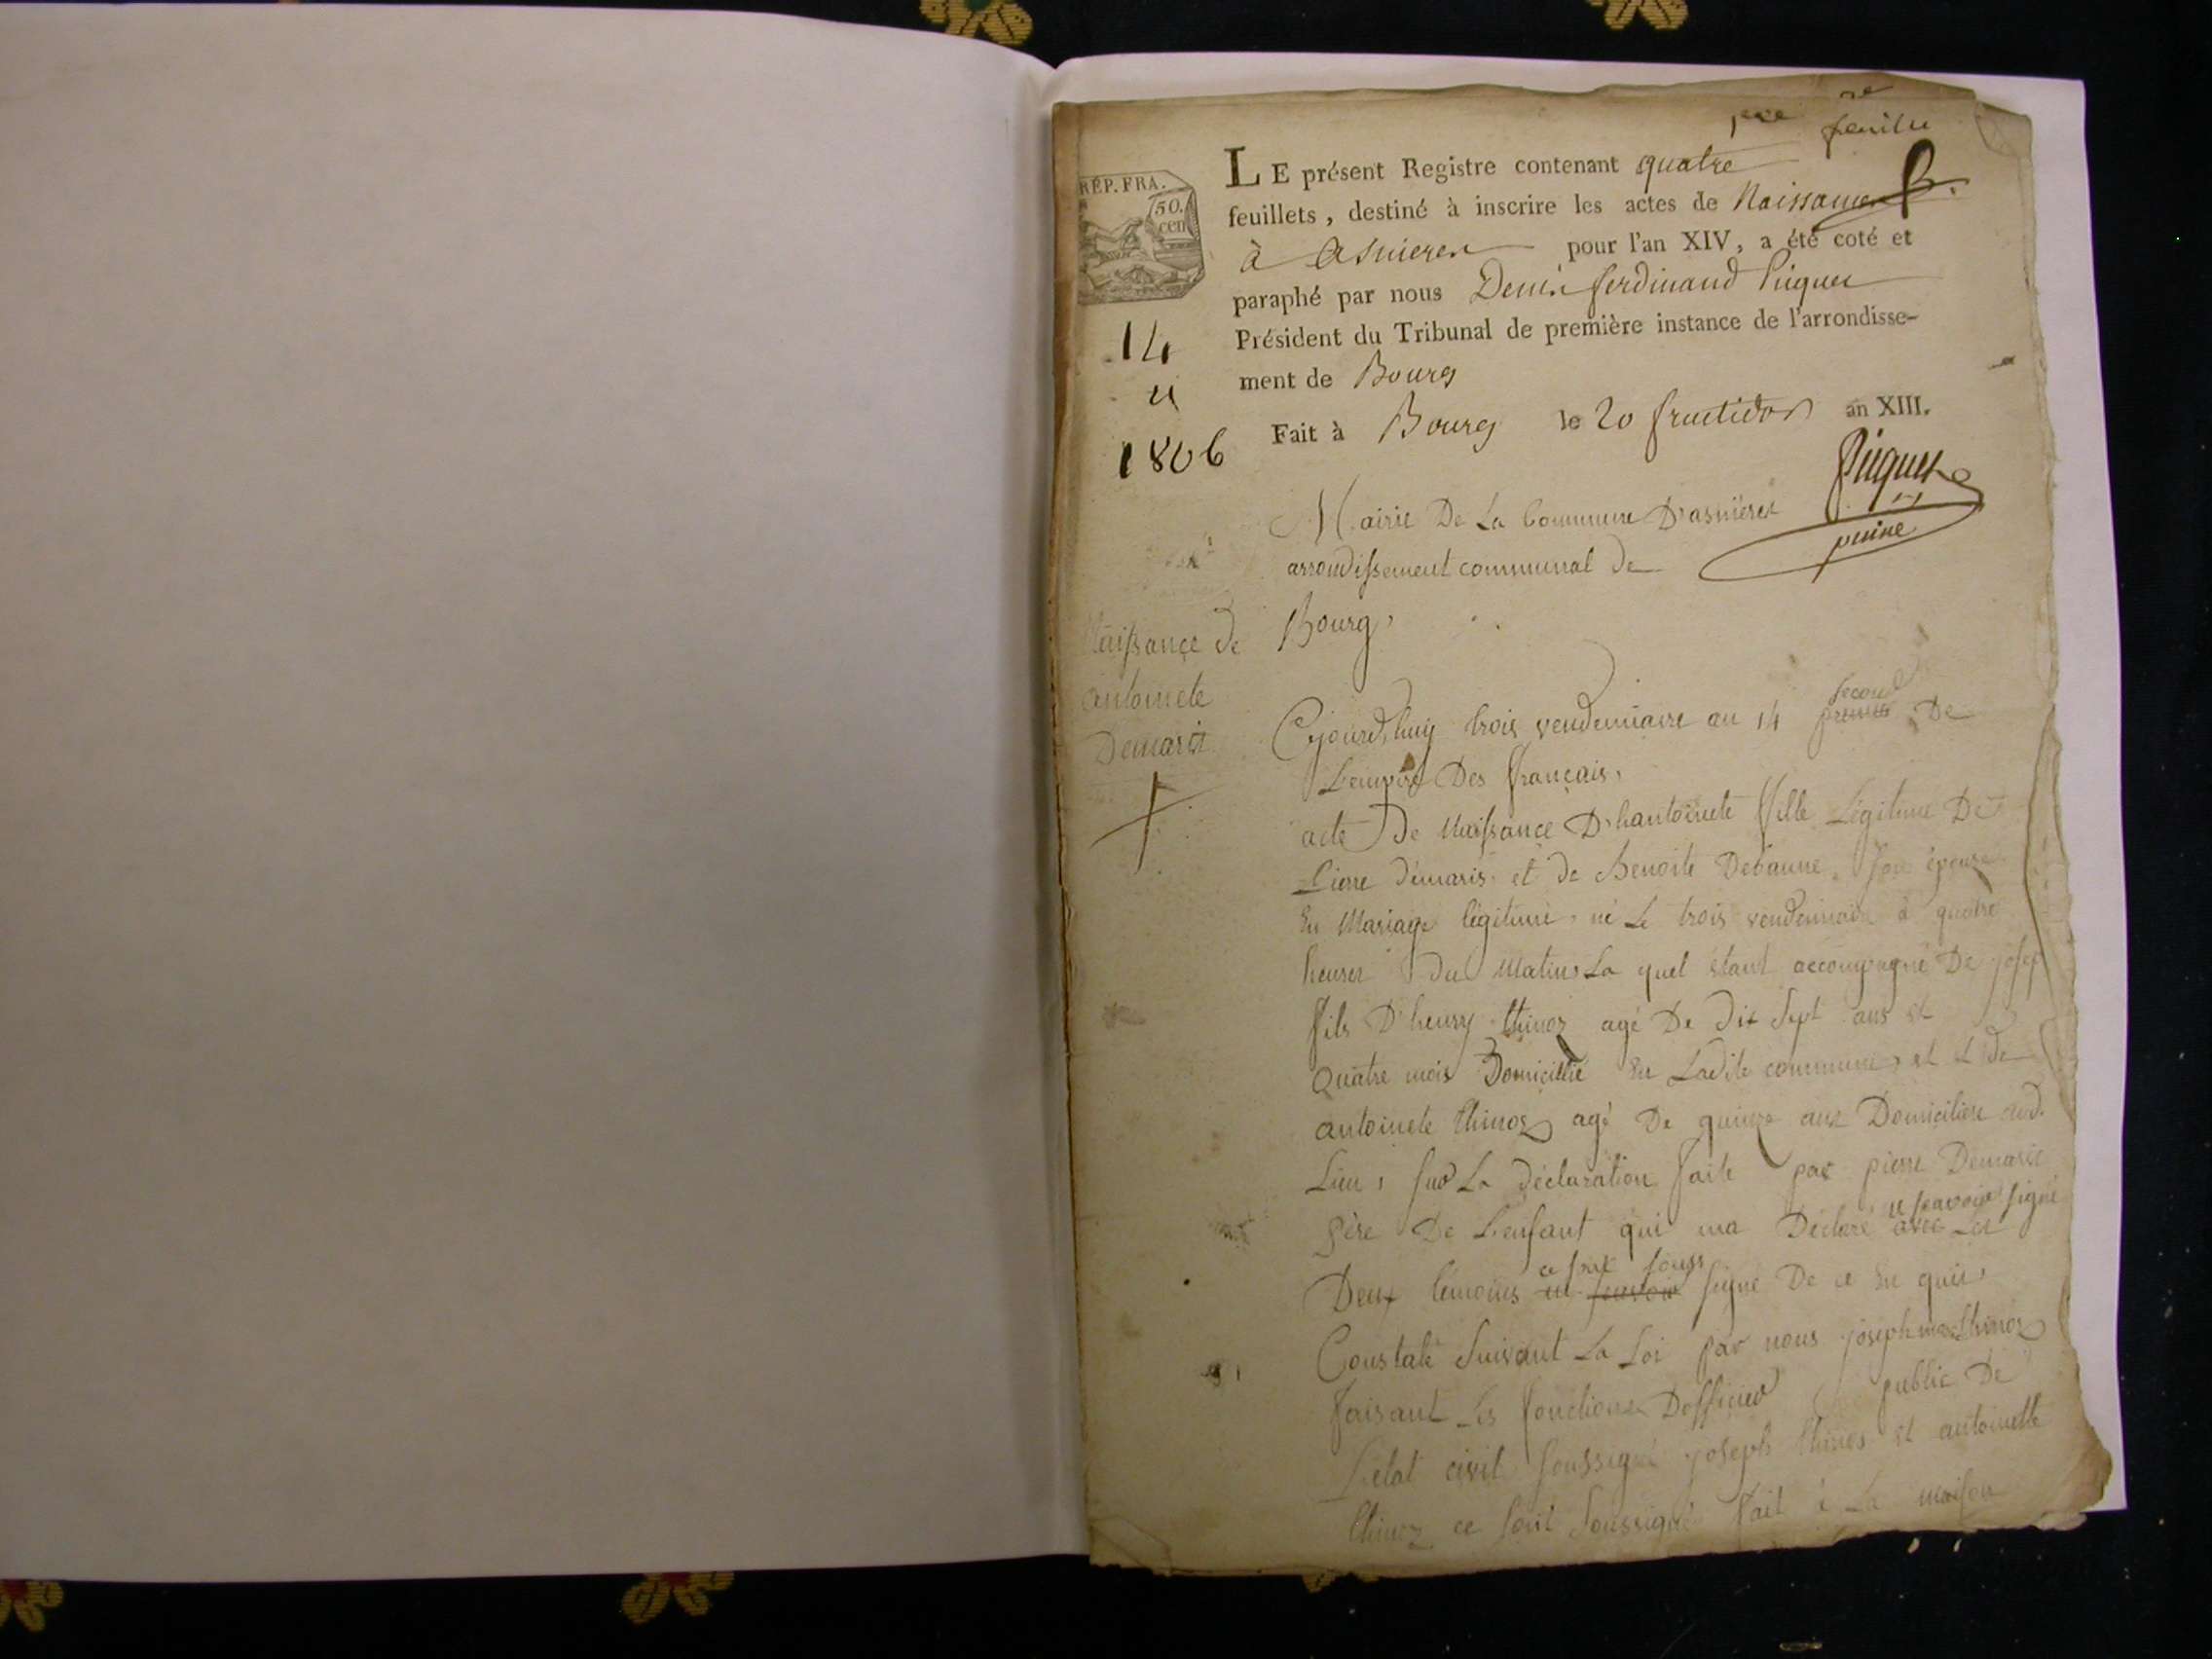 1ere feuille
RÉP. FRA.
50.
cen
LE présent Registre contenant quatre
feuillets, destiné à inscrire les actes de Naissance
à asnieres pour l'an XIV, a été coté et
paraphé par nous Denis ferdinand Piquet
Président du Tribunal de première instance de l'arrondisse-
ment de Bourg
Fait à Bourg le 20 fructidor an XIII.
Piquet
14
1806
Mairie De La Commune D'asnieres
arrondissement communal de
Bourg,
Naissance de
antoinete
Demaris
Cejourd'huy trois vendemiaire an 14 second premier De
L'empire Des français,
acte De Naissance D'hantoinete fille Légitime De
Pierre démaris et de Benoite Debaune son épouse
En Mariage légitime, né Le trois vendemiaire à quatre
heures du Matin La quel étant accompagné De josep
fils D'henry thinoz agé De Dix Sept ans et
quatre mois Domicillié En Ladite commune, et de
antoinete thinoz agé De quinze ans Domiciliere aud.
Lieu, sur La déclaration faite par pierre Demaris
père De L'enfant qui ma Déclaré ne savoir signé avec Les
Deux témoins ce sont sous ne savoir signé De ce En quis,
Constaté Suivant La Loi par nous joseph marie thinoz
faisant Les fonctions D'officier public De
L'état civil soussigné joseph thinos et antoinette
thinoz ce sont soussigné fait à La maison